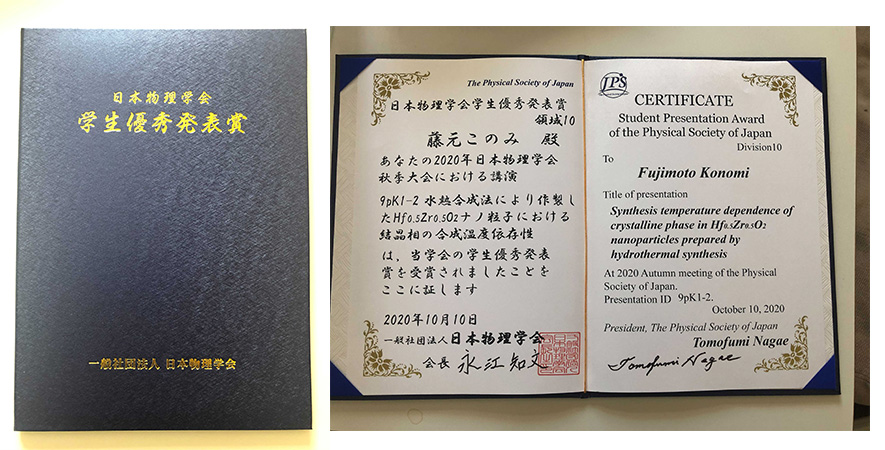 日本物理学会
学生優秀発表賞
一般社団法人 日本物理学会
The Physical Society of Japan
日本物理学会学生優秀発表賞
領域10
藤元このみ 殿
あなたの2020年日本物理学会
秋季大会における講演
9pK1-2 水熱合成法により作製し
たHf0.5Zr0.5O2ナノ粒子における
結晶相の合成温度依存性
は、当学会の学生優秀発表
賞を受賞されましたことを
ここに証します
2020年10月10日
一般社団法人日本物理学会
会長 永江知文
JPS
CERTIFICATE
Student Presentation Award
of the Physical Society of Japan
Division10
To
Fujimoto Konomi
Title of presentation
Synthesis temperature dependence of
crystalline phase in Hf0.5Zr0.5O2
nanoparticles prepared by
hydrothermal synthesis
At 2020 Autumn meeting of the Physical
Society of Japan.
Presentation ID 9pK1-2.
October 10, 2020
President, The Physical Society of Japan
Tomofumi Nagae
Tomofumi Nagae